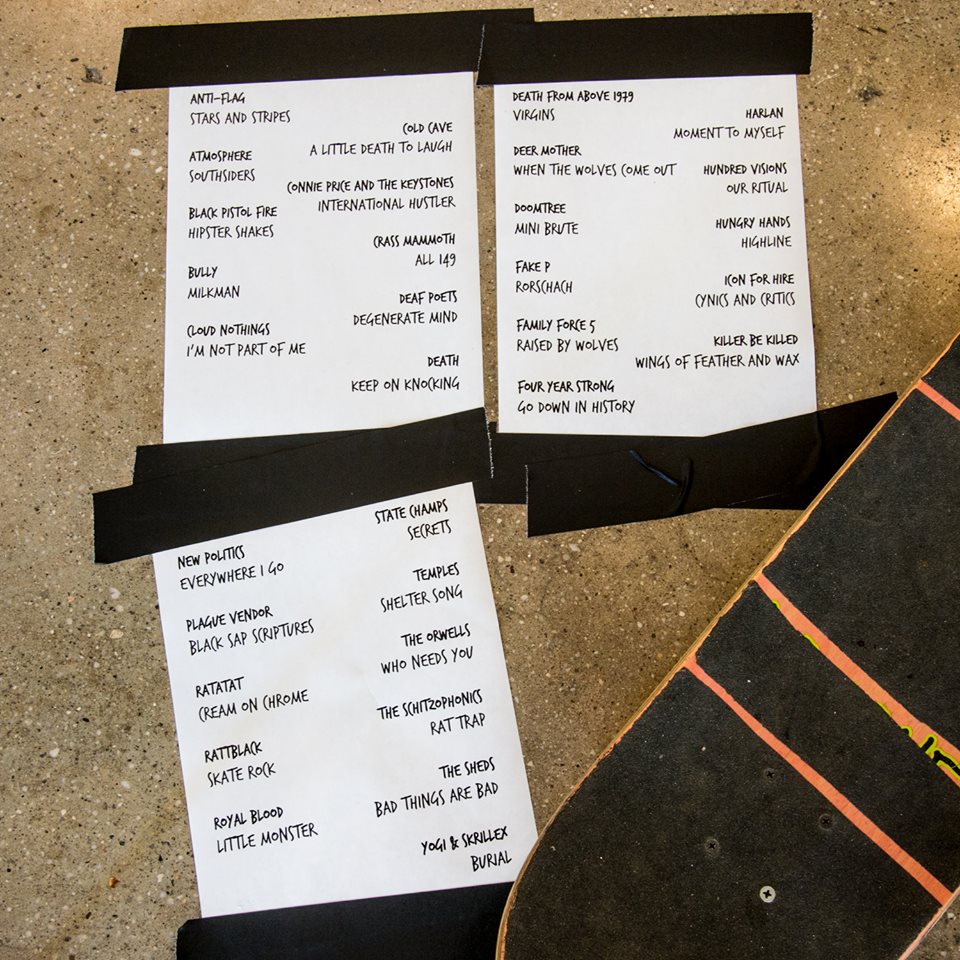 ANTI-FLAG
STARS AND STRIPES
ATMOSPHERE
SOUTHSIDERS
BLACK PISTOL FIRE
HIPSTER SHAKES
BULLY
MILKMAN
CLOUD NOTHINGS
I'M NOT PART OF ME
COLD CAVE
A LITTLE DEATH TO LAUGH
CONNIE PRICE AND THE KEYSTONES
INTERNATIONAL HUSTLER
CRASS MAMMOTH
ALL 149
DEAF POETS
DEGENERATE MIND
DEATH
KEEP ON KNOCKING
DEATH FROM ABOVE 1979
VIRGINS
DEER MOTHER
WHEN THE WOLVES COME OUT
DOOMTREE
MINI BRUTE
FAKE P
RORSCHACH
FAMILY FORCE 5
RAISED BY WOLVES
FOUR YEAR STRONG
GO DOWN IN HISTORY
HARLAN
MOMENT TO MYSELF
HUNDRED VISIONS
OUR RITUAL
HUNGRY HANDS
HIGHLINE
ICON FOR HIRE
CYNICS AND CRITICS
KILLER BE KILLED
WINGS OF FEATHER AND WAX
NEW POLITICS
EVERYWHERE I GO
PLAGUE VENDOR
BLACK SAP SCRIPTURES
RATATAT
CREAM ON CHROME
RATTBLACK
SKATE ROCK
ROYAL BLOOD
LITTLE MONSTER
STATE CHAMPS
SECRETS
TEMPLES
SHELTER SONG
THE ORWELLS
WHO NEEDS YOU
THE SCHITZOPHONICS
RAT TRAP
THE SHEDS
BAD THINGS ARE BAD
YOGI & SKRILLEX
BURIAL